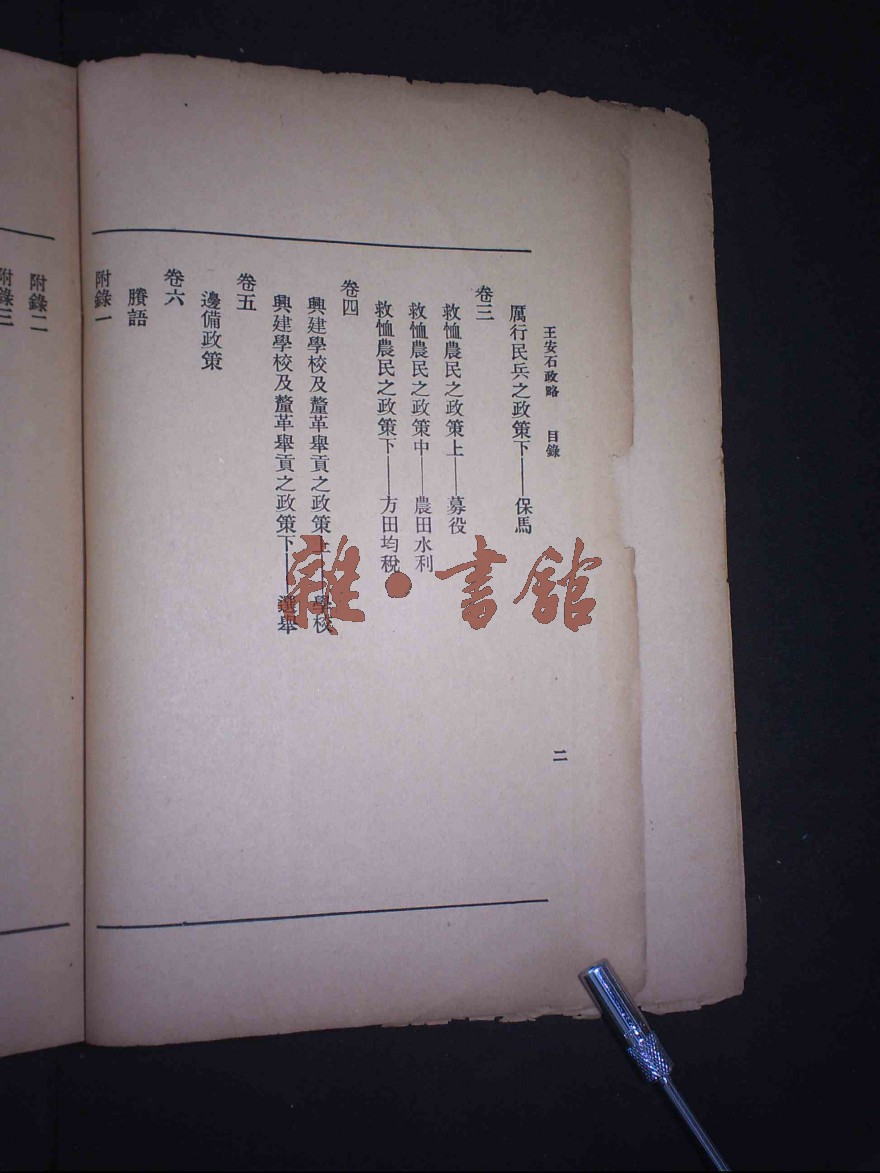 王安石政略 目錄
二
厲行民兵之政策下——保馬
卷三
救恤農民之政策上——募役
救恤農民之政策中——農田水利
救恤農民之政策下——方田均稅
卷四
興建學校及釐革舉貢之政策上——學校
興建學校及釐革舉貢之政策下——選舉
卷五
邊備政策
卷六
賸語
附錄一
附錄二
附錄三
雜·書館